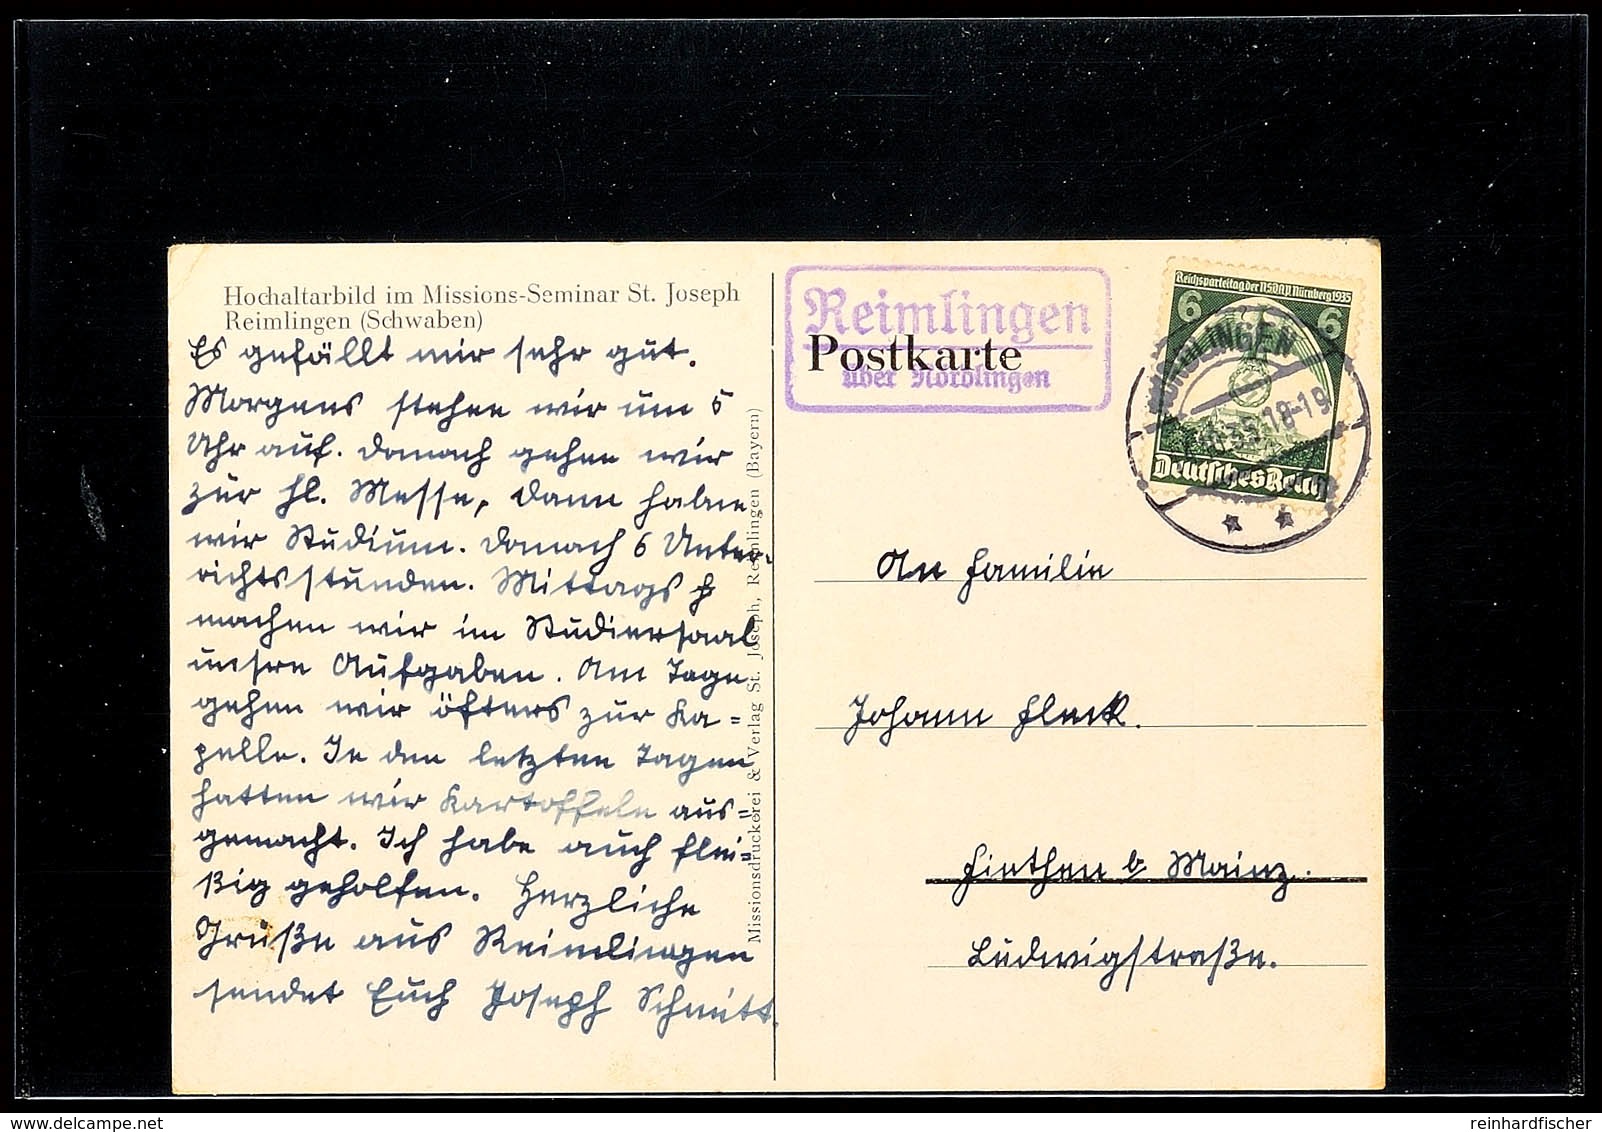 Hochaltarbild im Missions-Seminar St. Joseph
Reimlingen (Schwaben)
Es gefällt mir sehr gut.
Morgens stehen wir um 5
Uhr auf. Danach gehen wir
zur hl. Messe, dann haben
wir Studium. Danach 6 Unter-
richtsstunden. Mittags
machen wir im Studiersaal
unsre Aufgaben. Am Tage
gehen wir öfters zur Ka=
pelle. In den letzten Tagen
hatten wir Kartoffeln aus=
gemacht. Ich habe auch flei=
ßig geholfen. Herzliche
Grüße aus Reimlingen
sendet Euch Joseph Schmitt.
Missionsdruckerei & Verlag St. Joseph, Reimlingen (Bayern)
Reimlingen
über Nördlingen
Postkarte
Reichsparteitag der NSDAP Nürnberg 1935
6 6
Deutsches Reich
NÖRDLINGEN
35 18-19
An Familie
Johann Fleck.
Finthen b Mainz.
Ludwigstraße.
reinhardfischer